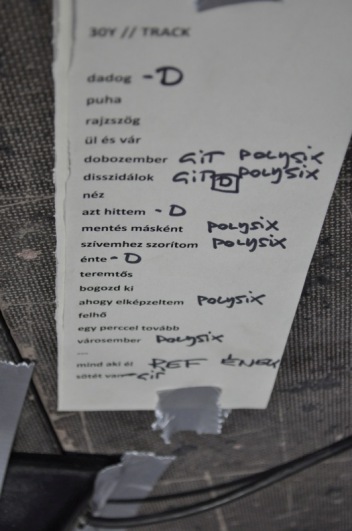 30Y // TRACK
dadog - D
puha
rajzszög
ül és vár
dobozember GIT POLYSIX
disszidálok GIT D POLYSIX
néz
azt hittem - D
mentés másként POLYSIX
szívemhez szorítom POLYSIX
énte - D
teremtős
bogozd ki
ahogy elképzeltem POLYSIX
felhő
egy perccel tovább
városember POLYSIX
---
mind aki él REF ÉNEK
sötét van GIT